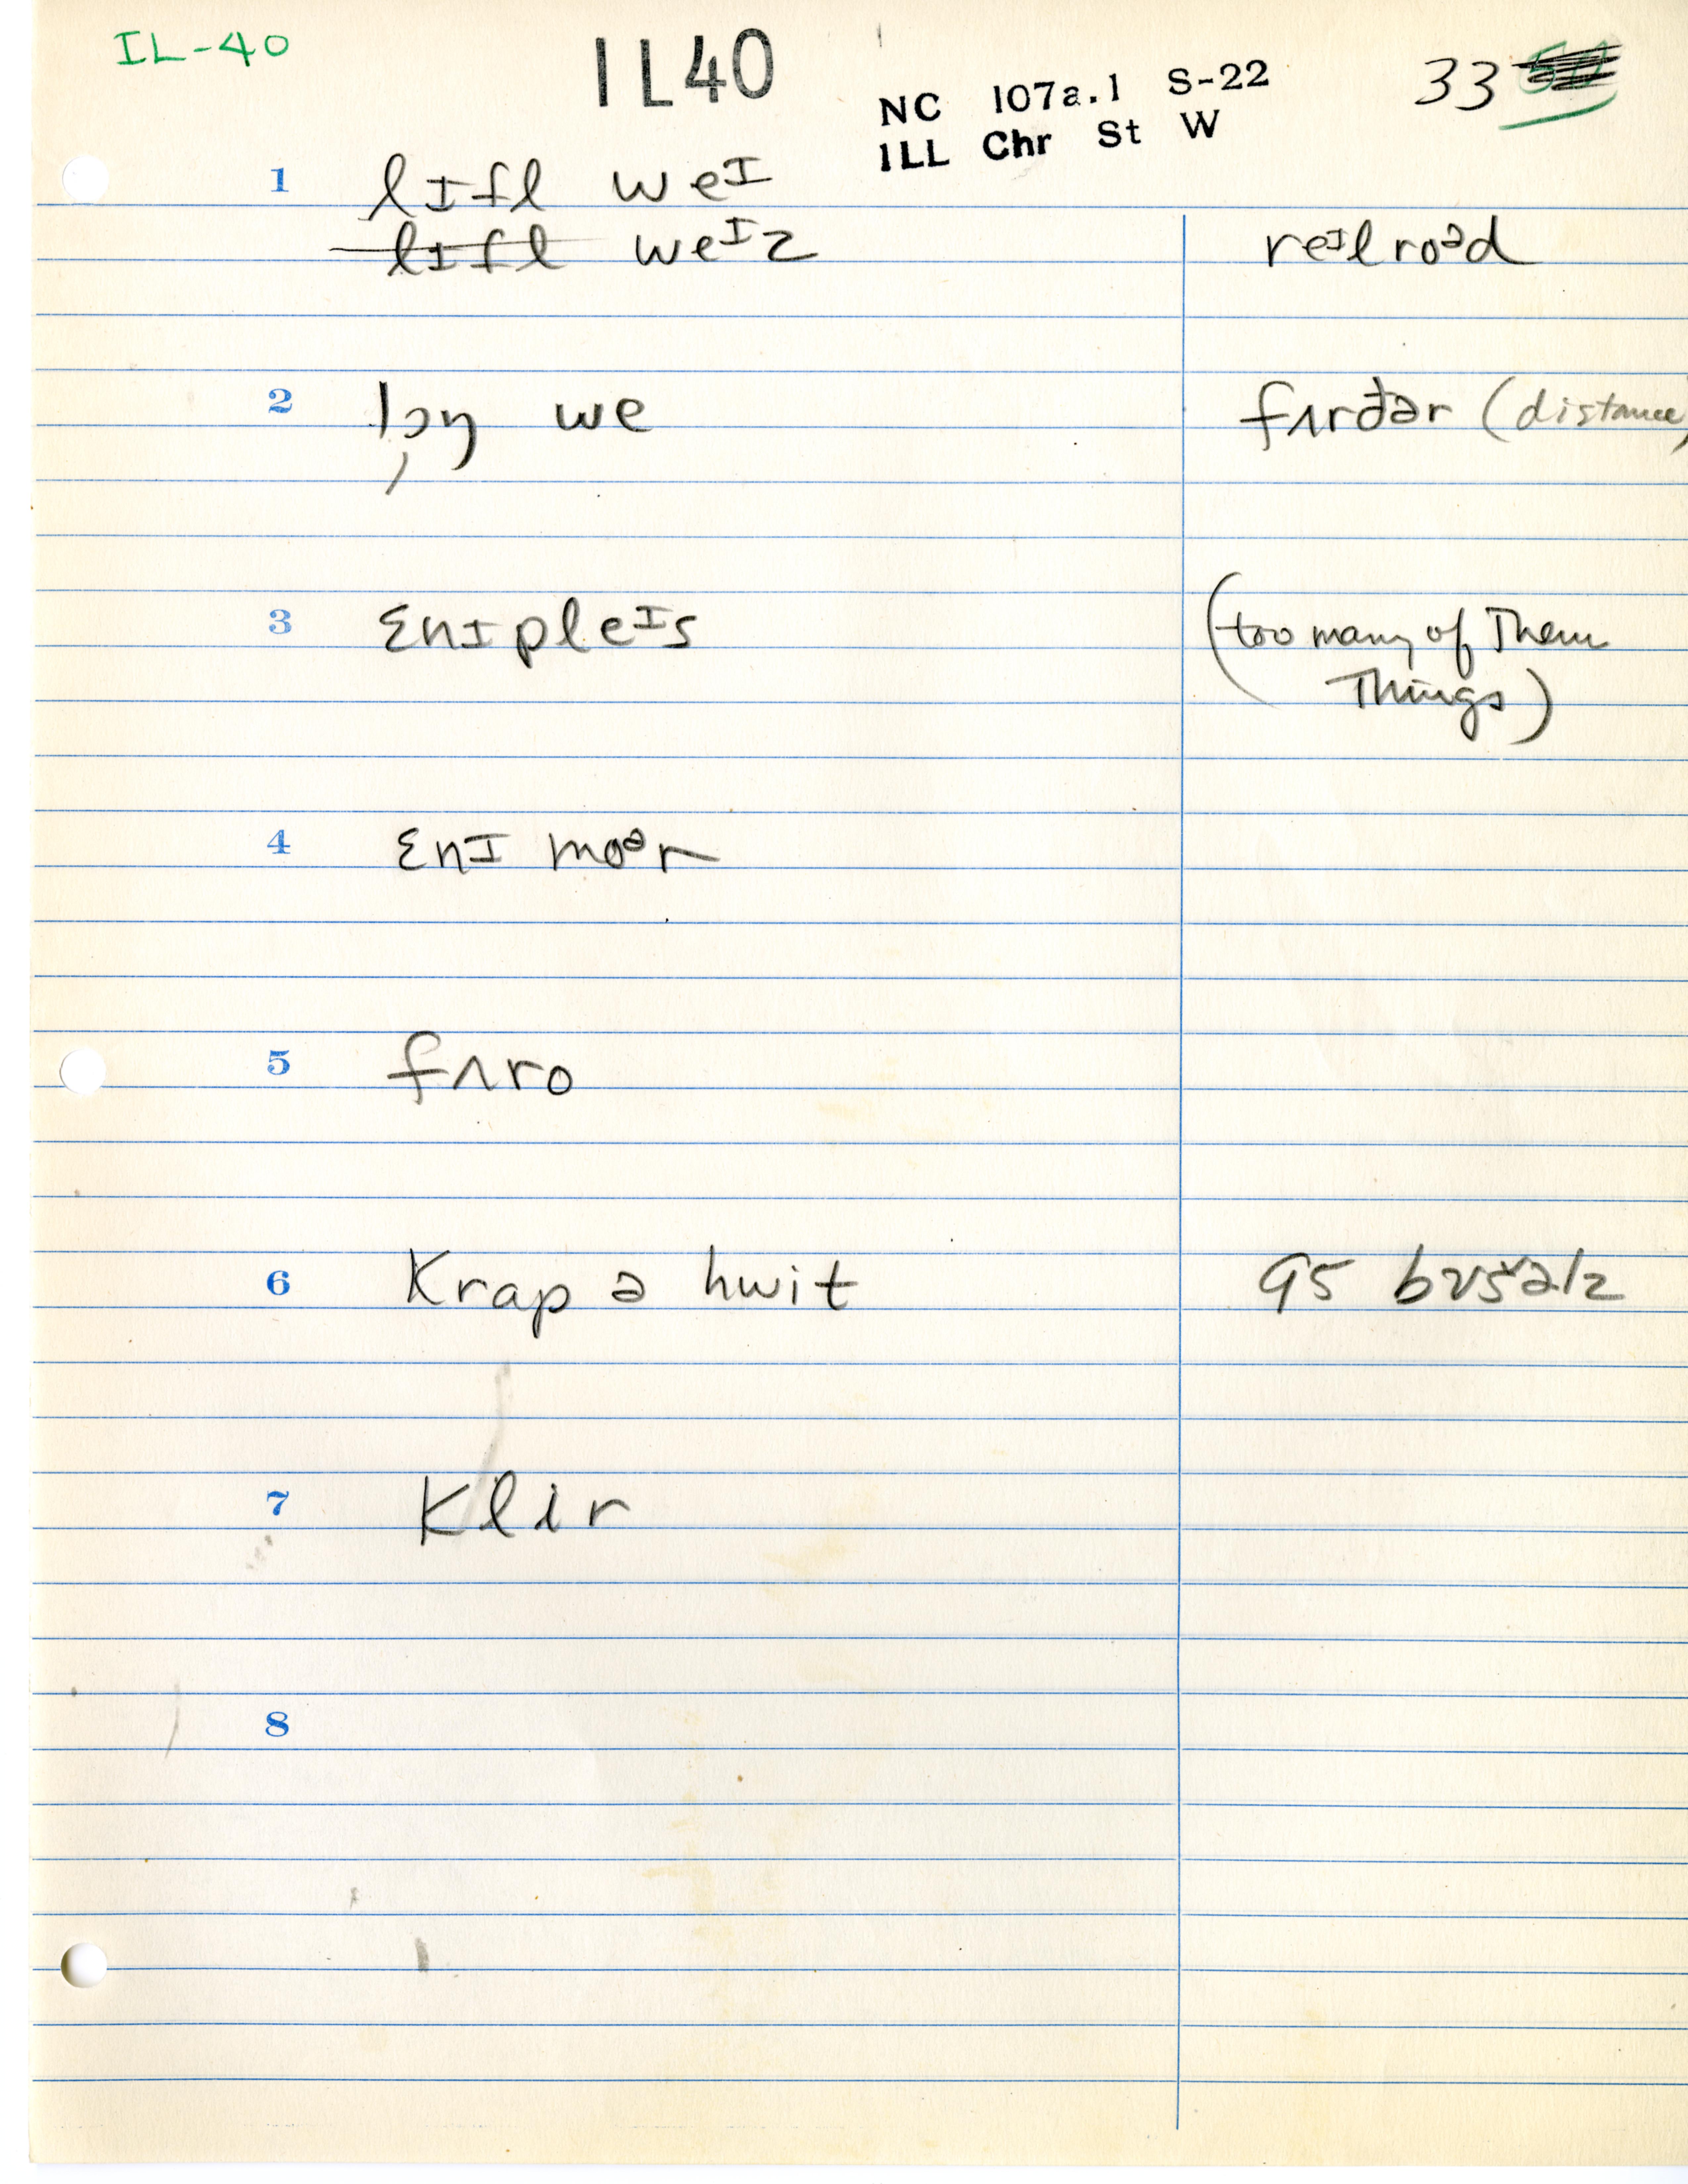 IL-40
IL40
NC 107a.1 S-22
ILL Chr St W
33
1 lɪfl weᴵ
lɪfl weᴵz
reᴵlroᵊd
2 lɔŋ we
fʌrđər (distance)
3 ɛnɪpleᴵs
(too many of Them
Things)
4 ɛnɪ moᵊr
5 fʌro
6 Krap ə hwit
95 bʊšəlz
7 Klir
8